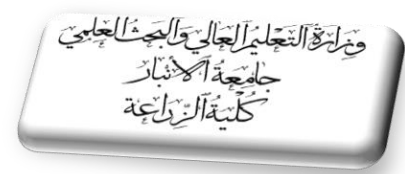 وَزَارَةُ التَّعْلِيمِ الْعَالِي وَالْبَحْثِ الْعِلْمِيِّ
جَامِعَةُ الْأَنْبَارِ
كُلِّيَّةُ الزِّرَاعَة